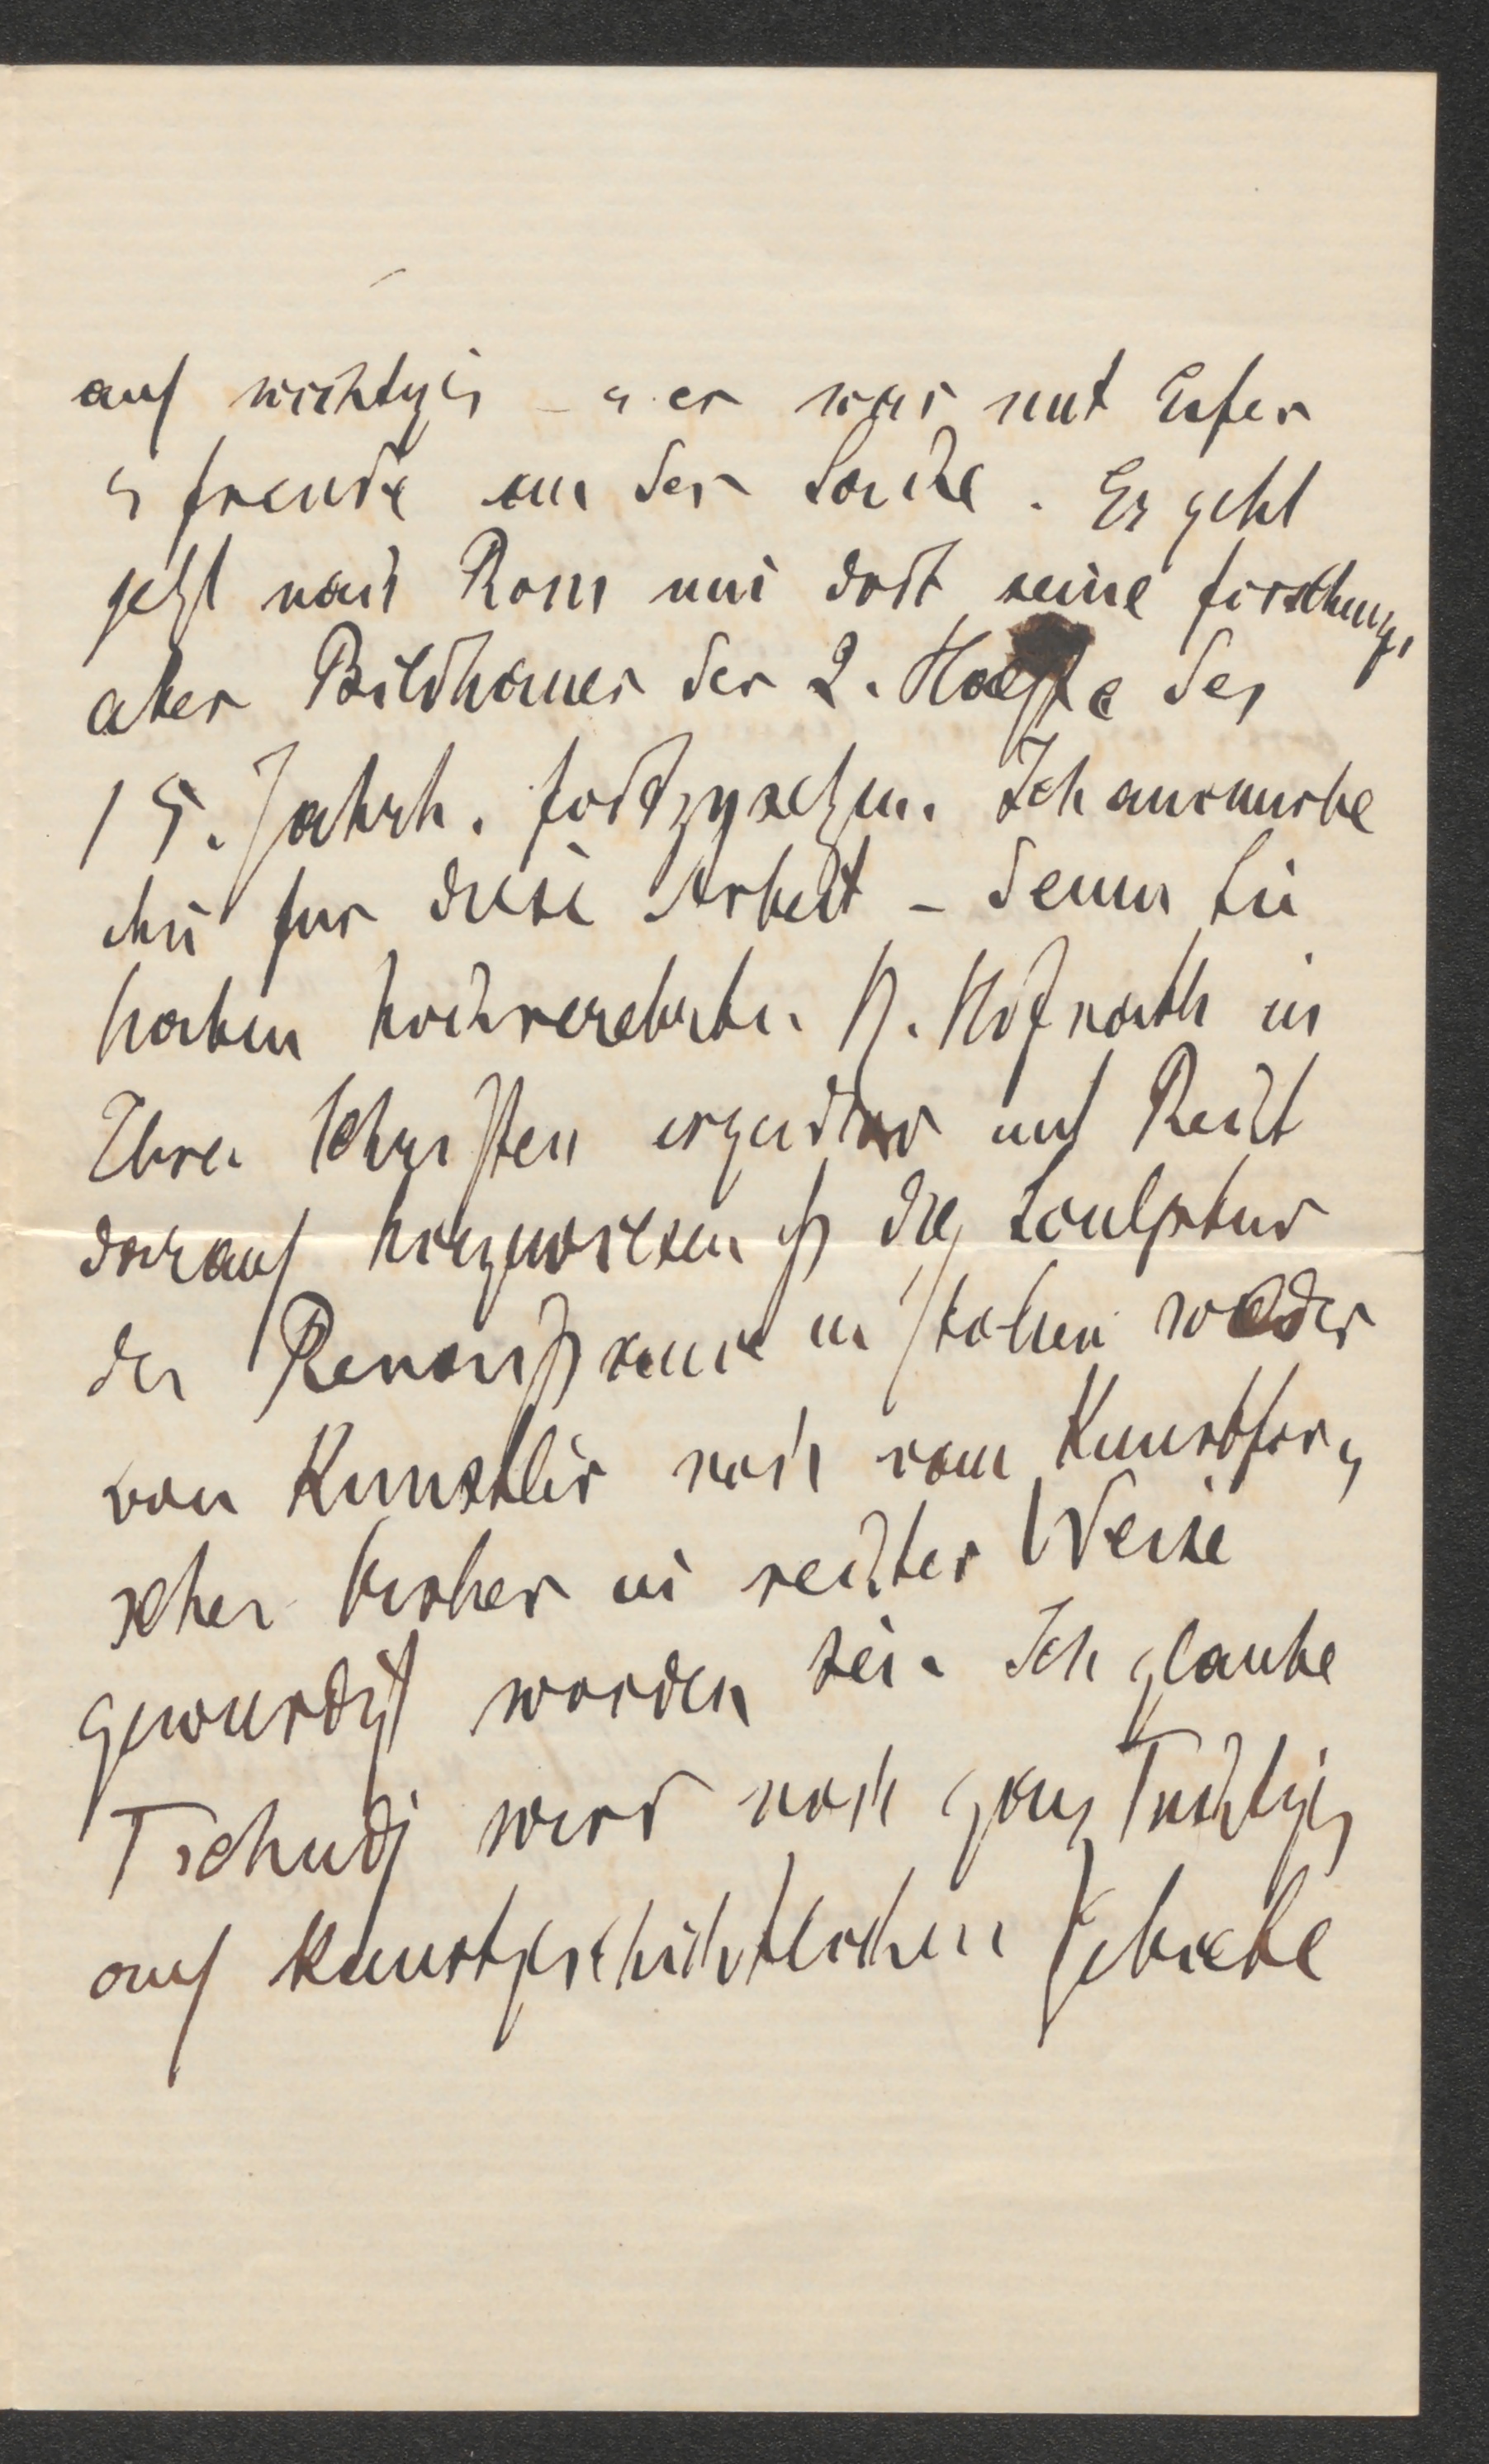 auf wichtiges – u. er war mit Eifer
u Freude an der Sache. Er geht
jetzt nach Rom um dort seine Forschung.
über Bildhauer der 2. Haelfte des
15. Jahrh. fortzusetzen. Ich
ihn für diese Arbeit – denn Sie
haben hochverehrter H. Hofrath in
Ihren Schriften irgendwo mit Recht
darauf hingewiesen die Sculptur
der Renaissance in Italien weder
von Künstler noch vom Kunstfor,
scher bisher in rechter Weise
gewürdigt worden sei. Ich glaube
Tschudi wird noch ganz Tüchtiges
auf kunstgeschichtlichen Gebiete